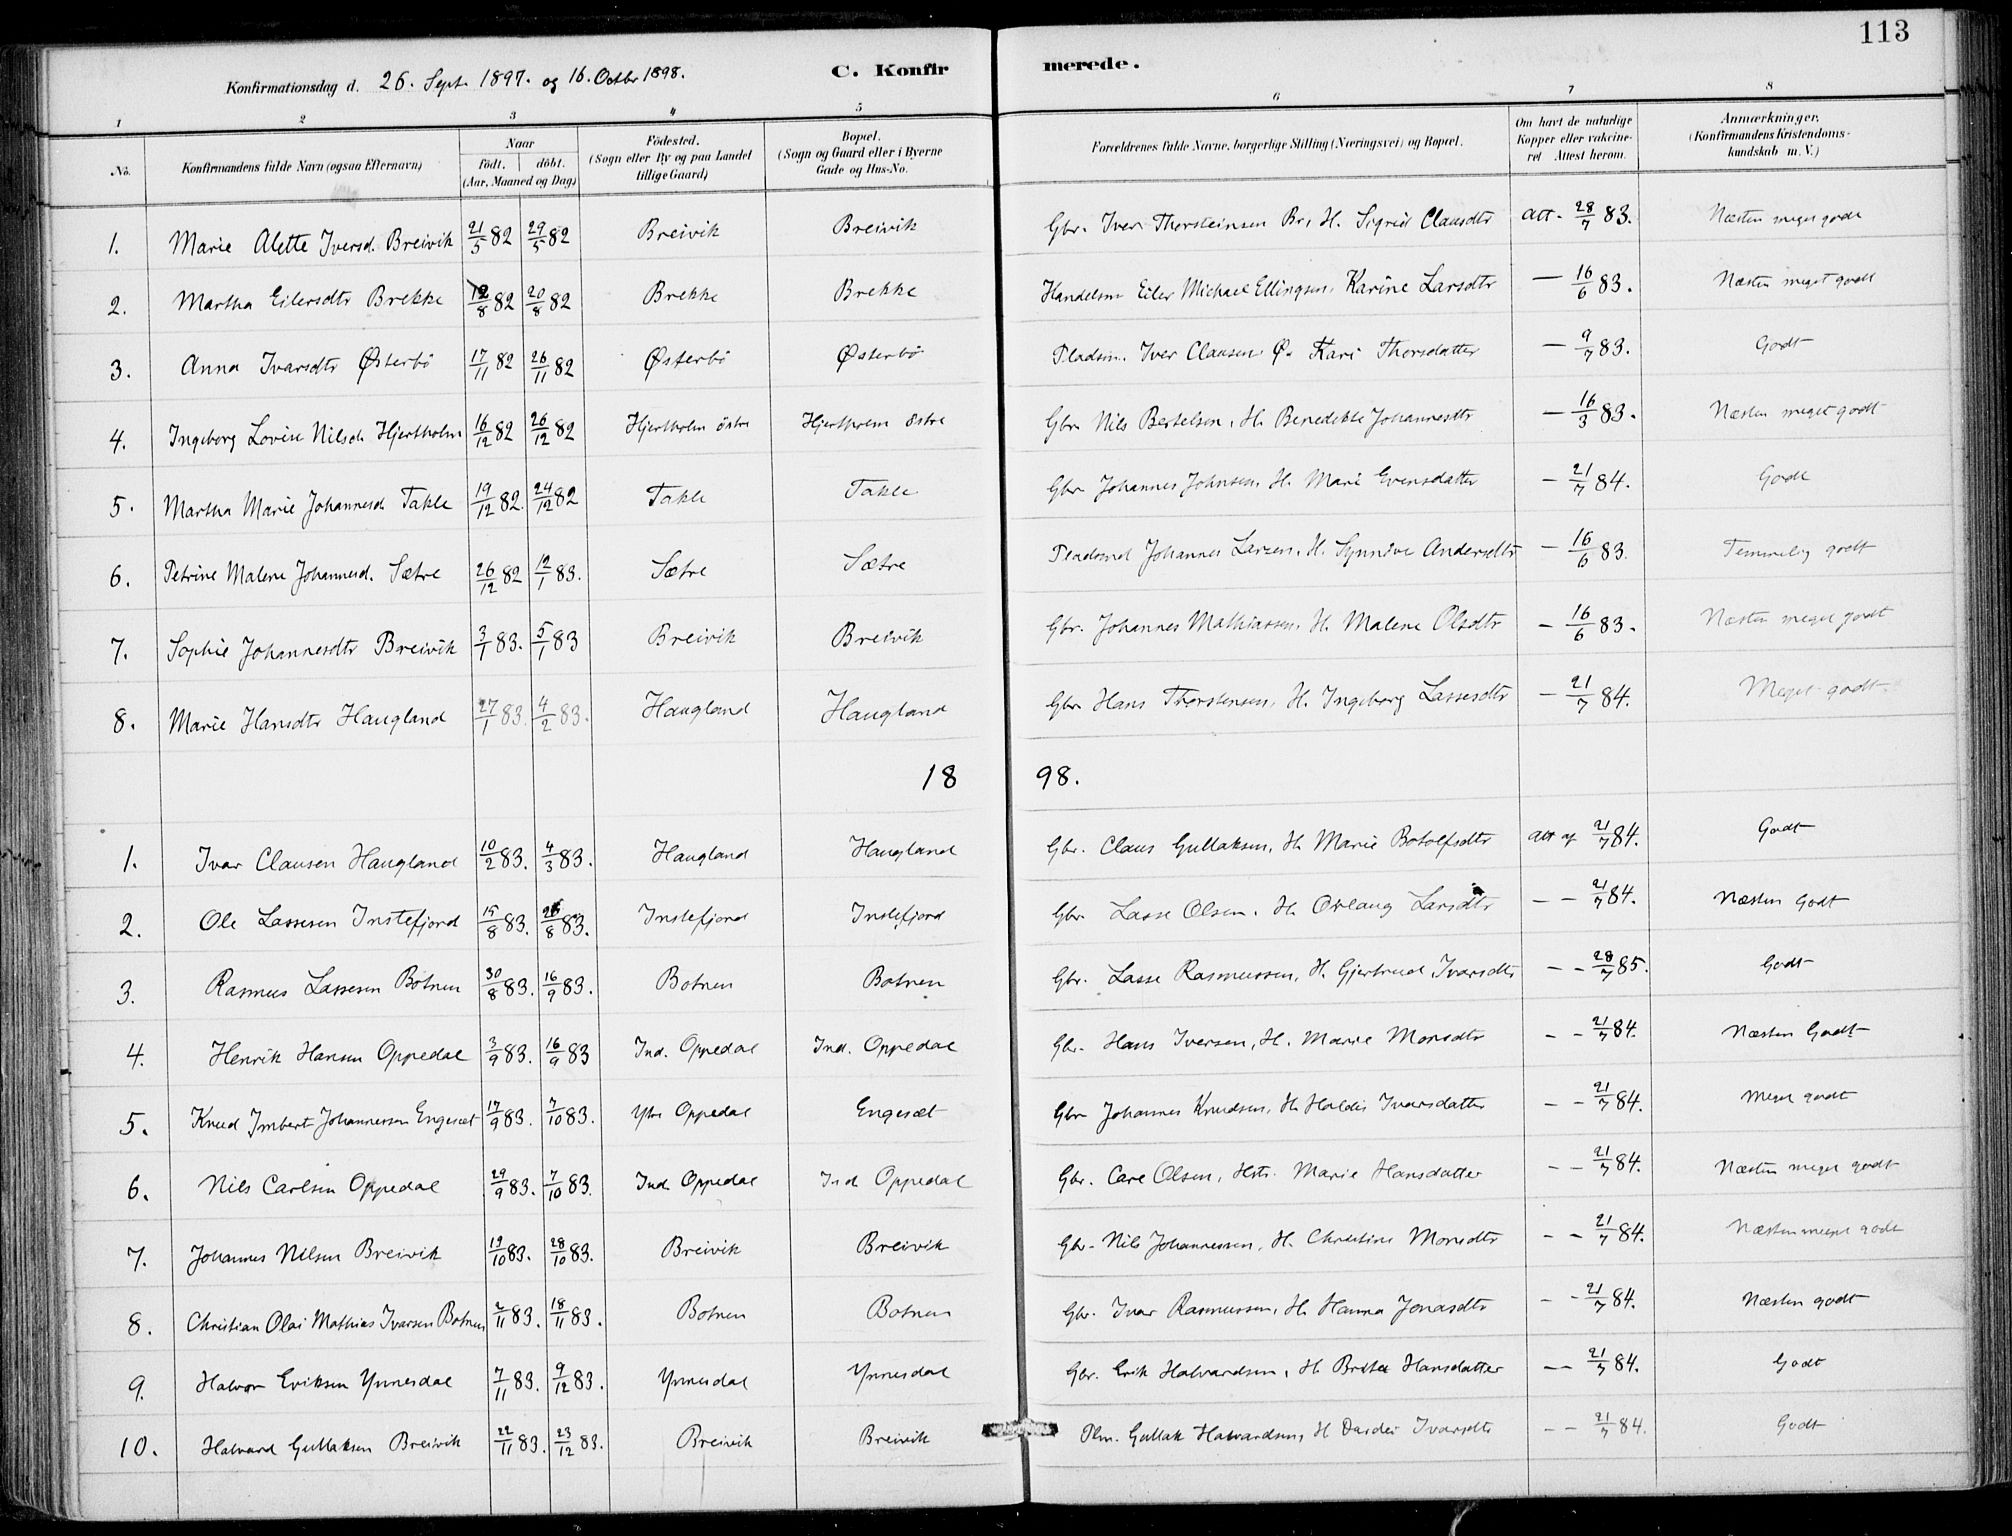 113
Konfirmationsdag d. 26. Sept. 1897. og 16. Octbr 1898. C. Konfirmerede.
1 2 3 4 5 6 7 8
No. Konfirmandens fulde Navn (ogsaa Efternavn) Naar födt. döbt. (Aar, Maaned og Dag) Födested. (Sogn eller By og paa Landet tillige Gaard) Bopæl. (Sogn og Gaard eller i Byerne Gade og Hus-No. Forældrenes fulde Navne, borgerlige Stilling (Næringsvei) og Bopæl. Om havt de naturlige Kopper eller vakcineret Attest herom. Anmærkninger. (Konfirmandens Kristendomskundskab m.V.)
1. Marie Alette Iversd. Breivik 21/5 82 29/5 82 Breivik Breivik Gbr. Iver Thorsteinsen Br, H. Sigrid Clausdtr Att. 28/7 83. Næsten meget godt
2. Martha Eilersdtr Brekke 12/8 82 20/8 82 Brekke Brekke Handelsm Eiler Michael Ellingsen, Karine Larsdtr — 16/6 83. Næsten meget godt
3. Anna Ivarsdtr Østerbö 17/11 82 26/11 82 Østerbö Østerbö Pladsm. Iver Clausen Ø. Kari Thorsdatter — 9/7 83. Godt
4. Ingeborg Lovise Nilsd. Hjertholm 16/12 82 26/12 82 Hjertholm östre Hjertholm östre Gbr Nils Bertelsen, H. Benedikte Johannesdtr — 16/3 83. Næsten meget godt
5. Martha Marie Johannesd. Takle 19/12 82. 24/12 82 Takle Takle Gbr Johannes Johnsen, H. Mari Evensdatter — 21/7 84. Godt
6. Petrine Malene Johannesd. Sætre 26/12 82 12/1 83. Sætre Sætre Pladsmd Johannes Larsen, H. Synnöve Andersdtr — 16/6 83. Temmelig godt
7. Sophie Johannesdtr Breivik 3/1 83. 5/1 83 Breivik Breivik Gbr. Johannes Mathiassen, H. Malene Olsdtr — 16/6 83. Næsten meget godt
8. Marie Hansdtr Haugland 27/1 83. 4/2 83. Haugland Haugland Gbr Hans Thorstensen, H. Ingeborg Lassesdtr — 21/7 84. Meget godt.
1898.
1. Ivar Clausen Haugland 10/2 83. 4/3 83. Haugland Haugland Gbr. Claus Gullaksen, H. Marie Botolfsdtr Att af 21/7 84. Godt
2. Ole Lassesen Instefjord 15/8 83. 26/8 83. Instefjord Instefjord Gbr Lasse Olsen, H. Ovlaug Larsdtr — — 21/7 84. Næsten Godt
3. Rasmus Lassesen Botnen 30/8 83. 16/9 83. Botnen Botnen Gbr. Lasse Rasmussen, H. Gjertrud Ivarsdtr — — 28/7 85. Godt
4. Henrik Hansen Oppedal 3/9 83. 16/9 83 Ind. Oppedal Ind. Oppedal Gbr. Hans Iversen, H. Marie Monsdtr — — 21/7 84. Næsten Godt
5. Knud Imbert Johannessen Engesæt 17/9 83. 7/10 83. Ytr Oppedal Engesæt Gbr Johannes Knudsen, H. Haldis Ivarsdatter — — 21/7 84. Meget godt
6. Nils Carlsen Oppedal 29/9 83. 7/10 83. Ind. Oppedal Ind Oppedal Gbr. Carl Olsen, Hst. Marie Hansdatter — — 21/7 84. Næsten meget godt
7. Johannes Nilsen Breivik 19/10 83. 28/10 83. Breivik Breivik Gbr. Nils Johannessen, H. Christine Monsdtr — — 21/7 84. Næsten meget godt
8. Christian Olai Mathias Ivarsen Botnen 2/11 83. 18/11 83. Botnen Botnen Gbr. Ivar Rasmussen, H. Hanna Jonasdtr — — 21/7 84. Næsten godt
9. Halvor Eriksen Ynnesdal 7/11 83. 9/12 83. Ynnesdal Ynnesdal Gbr. Erik Halvardsen, H. Brita Hansdatter — — 21/7 84. Godt
10. Halvard Gullaksen Breivik 22/11 83. 23/12 83. Breivik Breivik Plm. Gullak Halvardsen, H Dardei Ivarsdtr — — 21/7 84. Godt